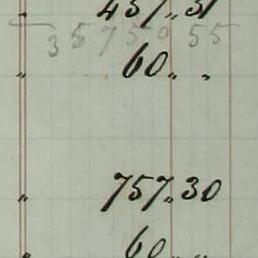 " 457 " 51
3 5 7 5 0 5 5
" 60 " "
" 757 " 30
" 60 " "